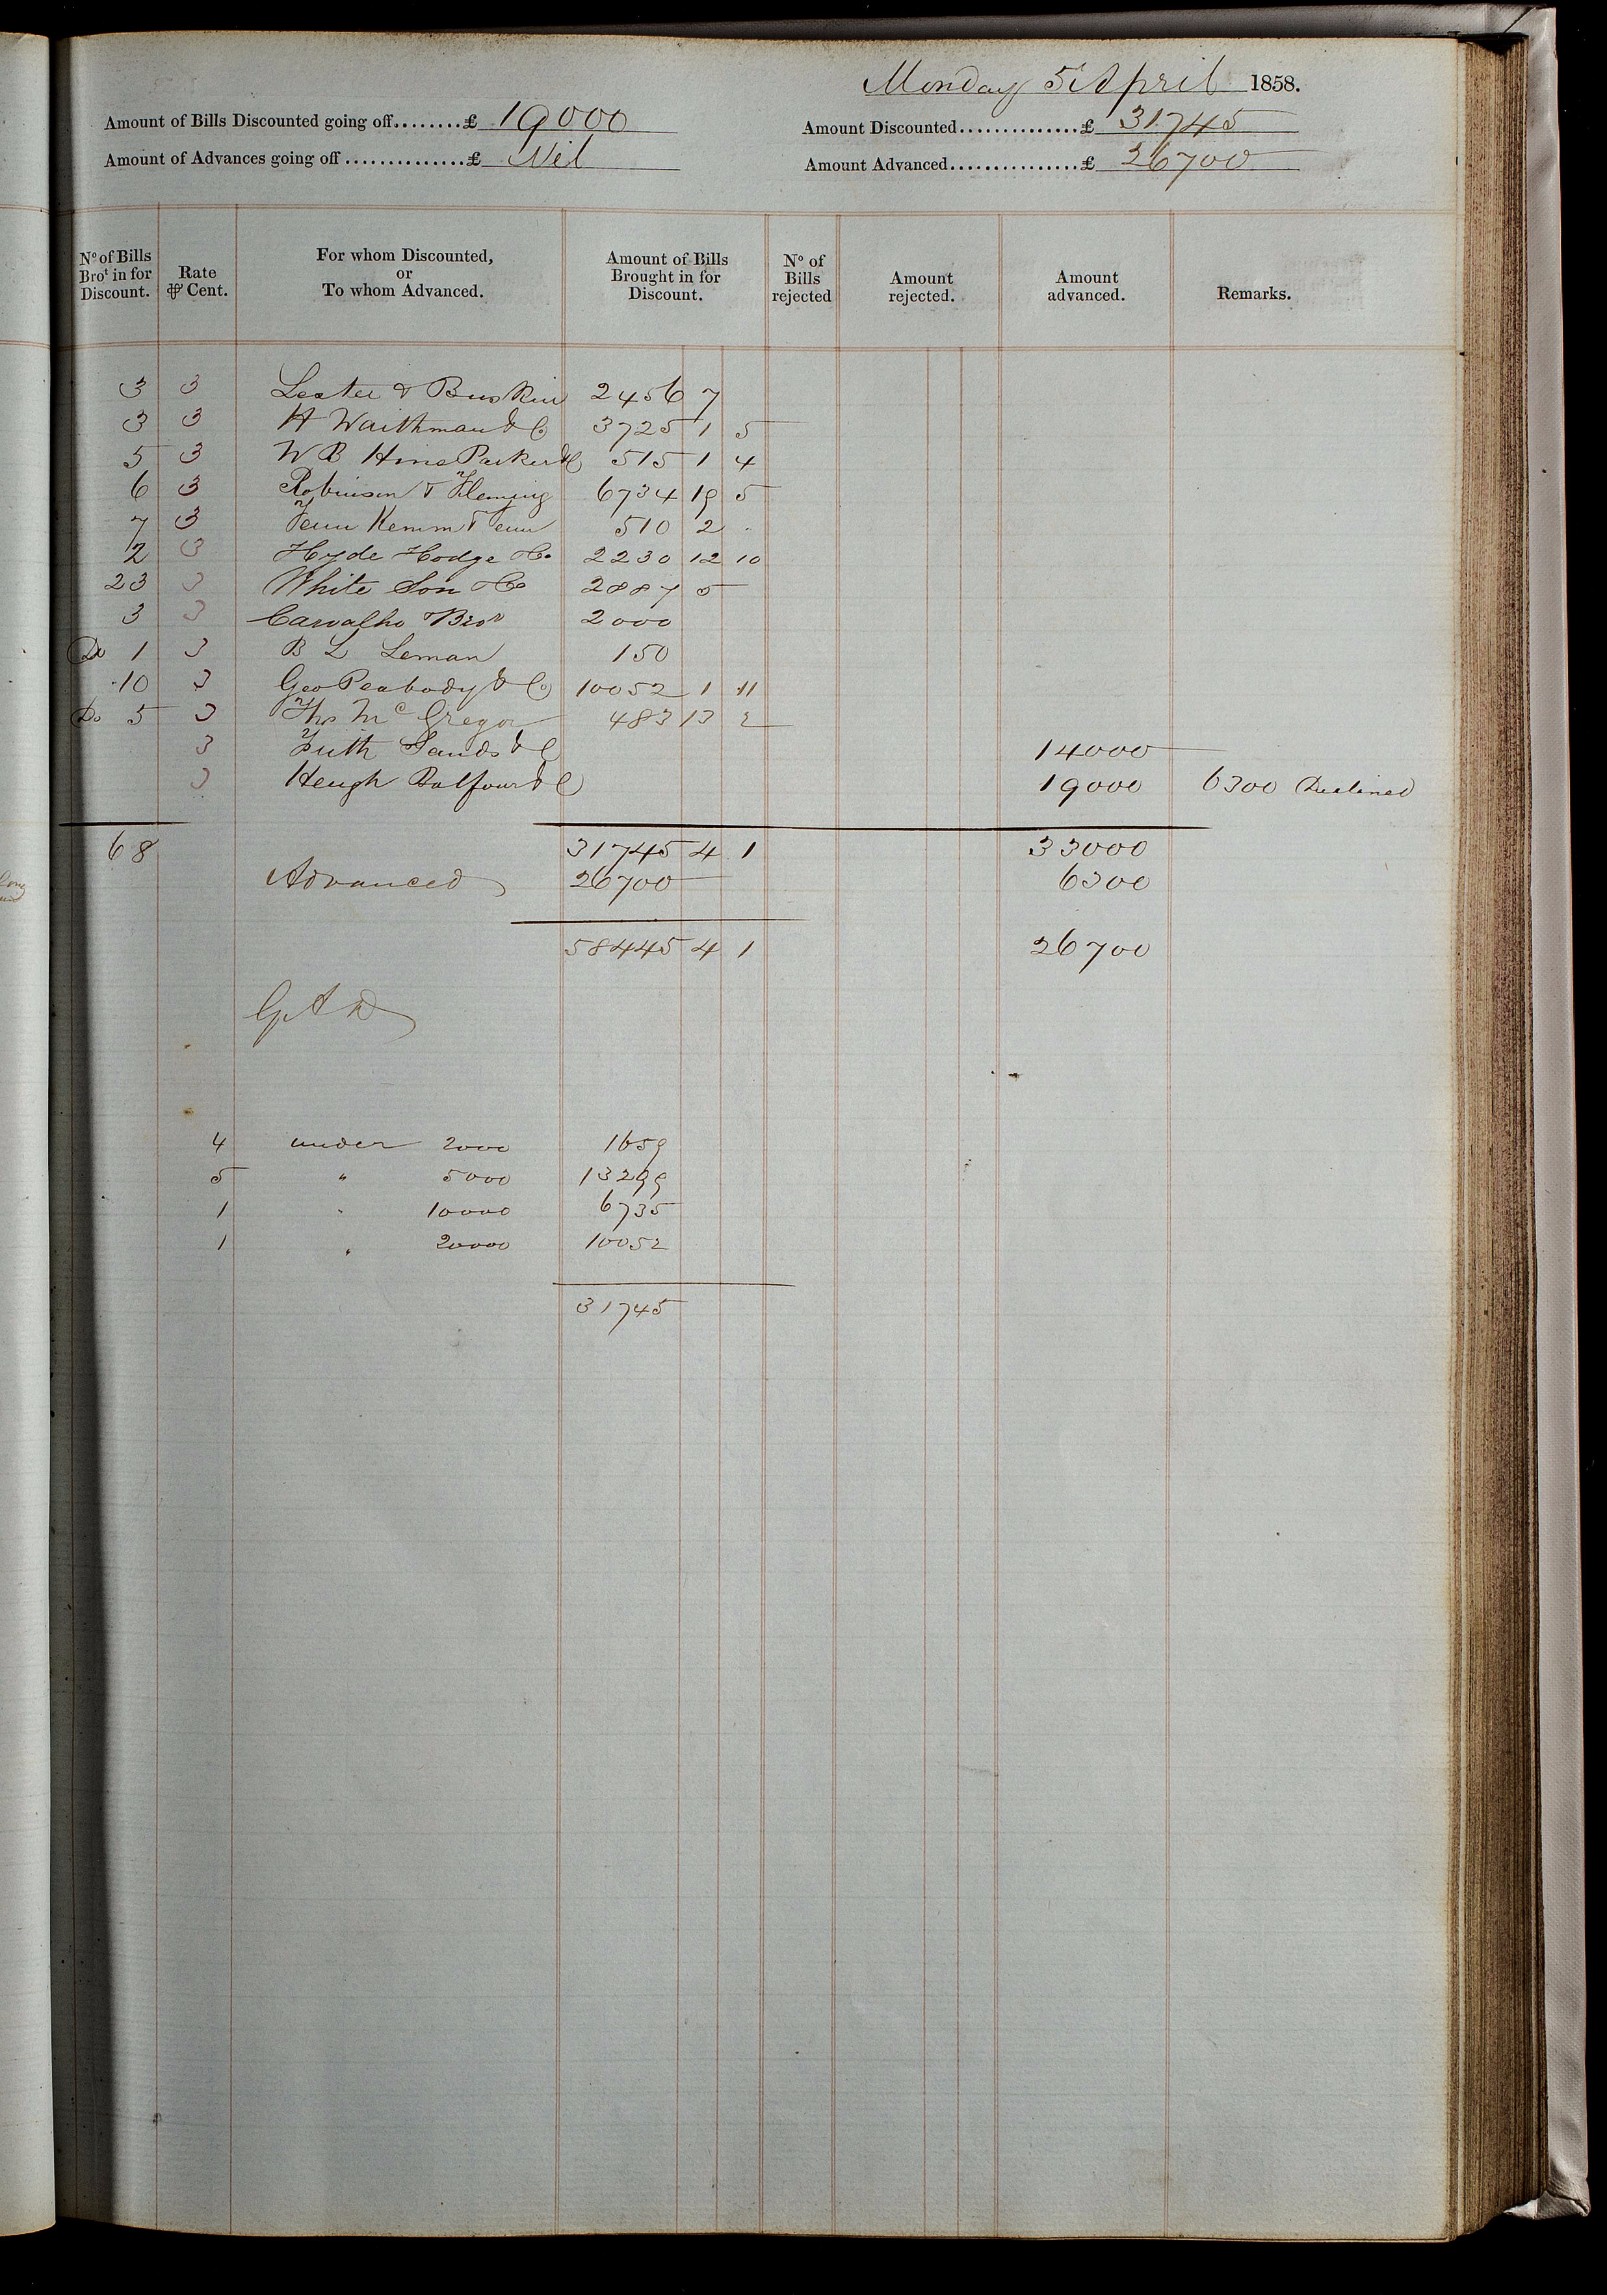 Monday 5 April 1858.
Amount of Bills Discounted going off........£ 19000 Amount Discounted...............£ 31745
Amount of Advances going off..............£ Nil Amount Advanced................£ 26700
No of Bills Brot in for Discount. Rate ⅌ Cent. For whom Discounted, or To whom Advanced. Amount of Bills Brought in for Discount. No of Bills rejected Amount rejected. Amount advanced. Remarks.
3 3 & 2456 7
3 3 H Waithman & Co 3725 1 5
5 3 W B Hine Parker & Co 515 1 4
6 3 Robinson & Fleming 6734 19 5
7 3 Fenn Kemm & Fenn 510 2 -
2 3 Hyde Hodge & Co 2230 12 10
23 3 White Son & Co 2887 5
3 3 Carvalho Bros 2000
Do 1 3 B L Leman 150
10 3 Geo Peabody & Co 10052 1 11
Do 5 3 Thos McGregor 483 13 2
3 Frith Sands & Co 14000
3 Heugh Balfour & Co 19000 6300 Declined
68 31745 4 1 33000
Advanced 26700 6300
58445 4 1 26700
4 under 2000 1659
5 " 5000 13299
1 " 10000 6735
1 " 20000 10052
31745